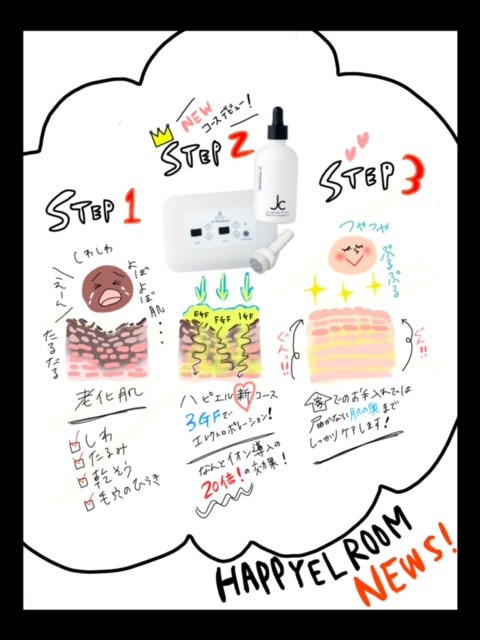 NEW
コースデビュー!
STEP 1
STEP 2
STEP 3
Jc
しわしわ
えーん
よぼよぼ肌
たるたる
老化肌
しわ
たるみ
乾そう
毛穴のひらき
EGF FGF IGF
ハピエル新コース
3GFで
エレクトロポレーション!
なんとイオン導入の
20倍!の効果!
つやつや
ぷるぷる
ぐんっ!!
ぐんっ!!
でのお手入れでは
届かない肌の奥まで
しっかりケアします!
HAPPYEL ROOM
NEWS!